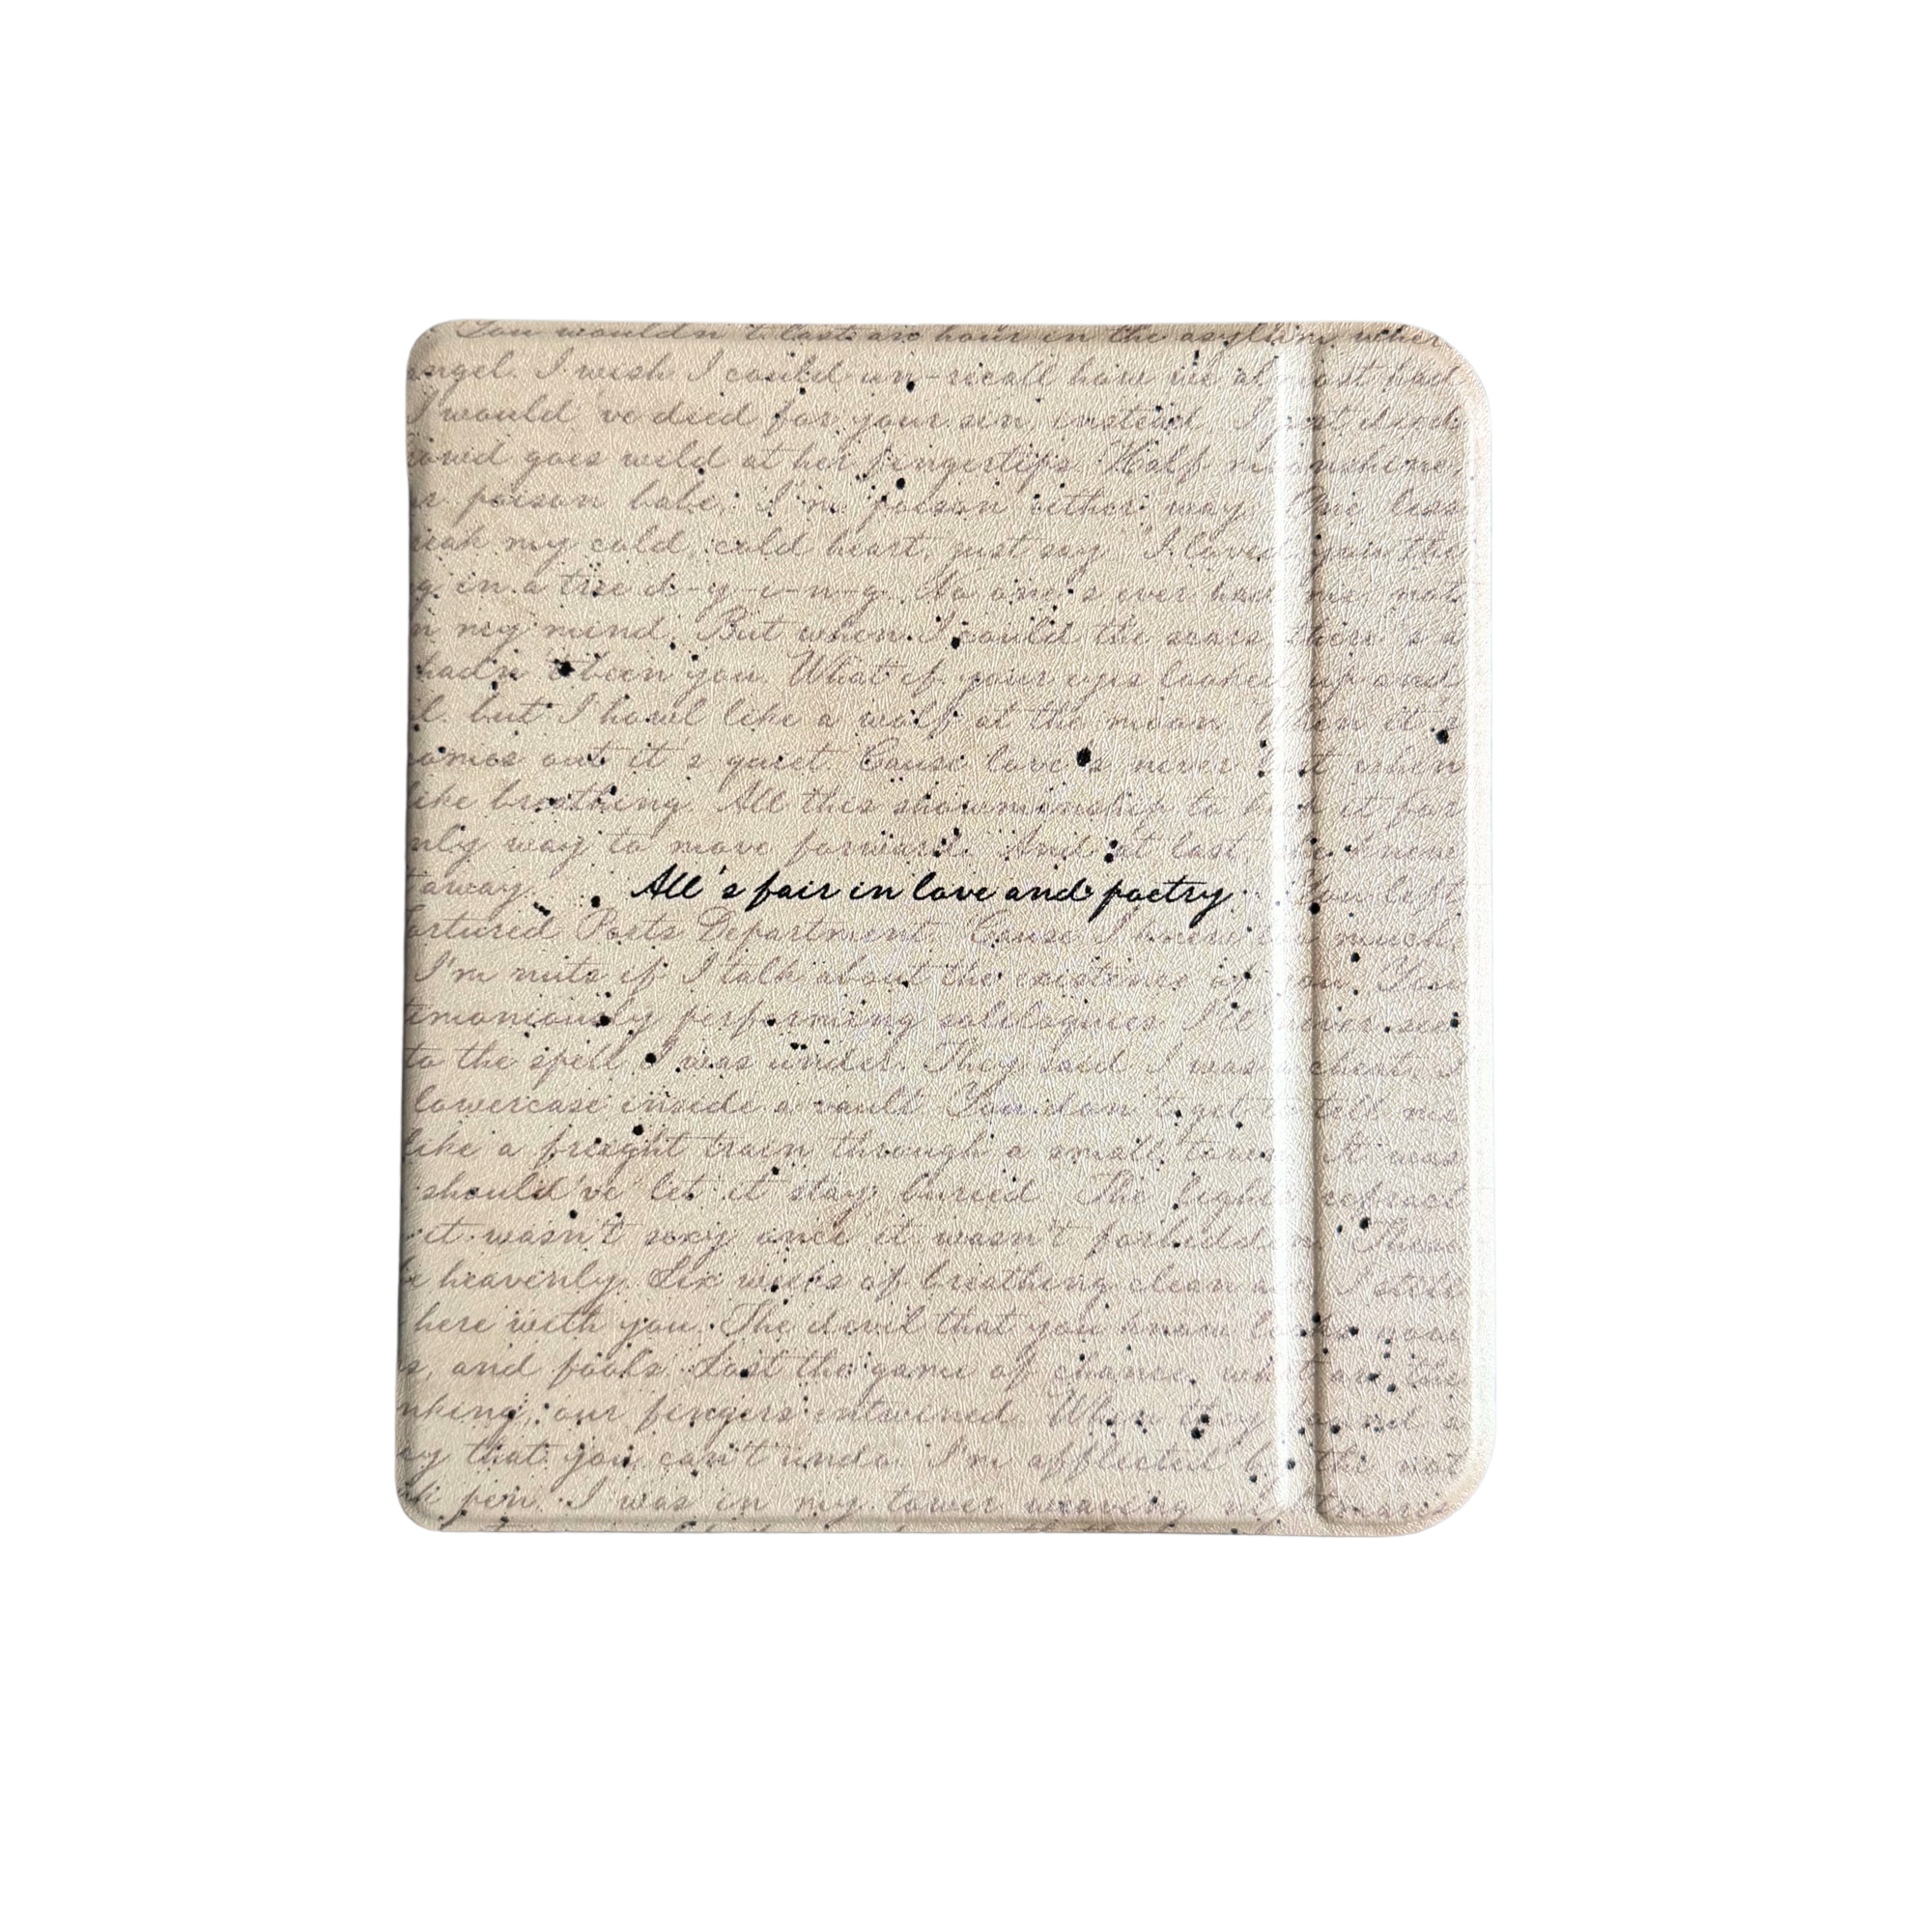 You wouldn't last an hour in the asylum where
angel. I wish I could un-recall how we almost had
I would've died for your sin, instead I just died
goes wild at her fingertips Half moonshine,
poison babe, I'm poison either way One less
my cold, cold heart, just say "I loved you the
in a tree d-y-i-n-g. No one's ever had me, not
in my mind. But when I could the scars there's a
hadn't been you. What if your eyes looked up and
but I howl like a wolf at the moon. When it's
comes out it's quiet. Cause love's never lost when
like breathing. All this showmanship to keep it for
only way to move forward. And at last, knew
away.
All's fair in love and poetry
You left
Tortured Poets Department. Cause I knew too much,
I'm nuts if I talk about the existence of you. You
performing soliloquies I'll never see
to the spell I was under. They said I was a cheat, I
lowercase inside a vault You don't get to tell me
like a freight train through a small town. It was
should've let it stay buried. The lights refract
it wasn't sexy once it wasn't forbidden These
heavenly. Six weeks of breathing clean air I still
here with you. The devil that you know looks now
and fools. Lost the game of chance, what are the
our fingers entwined. When they found a
that you can't undo. I'm afflicted by the not
pen. I was in my tower weaving nightmares